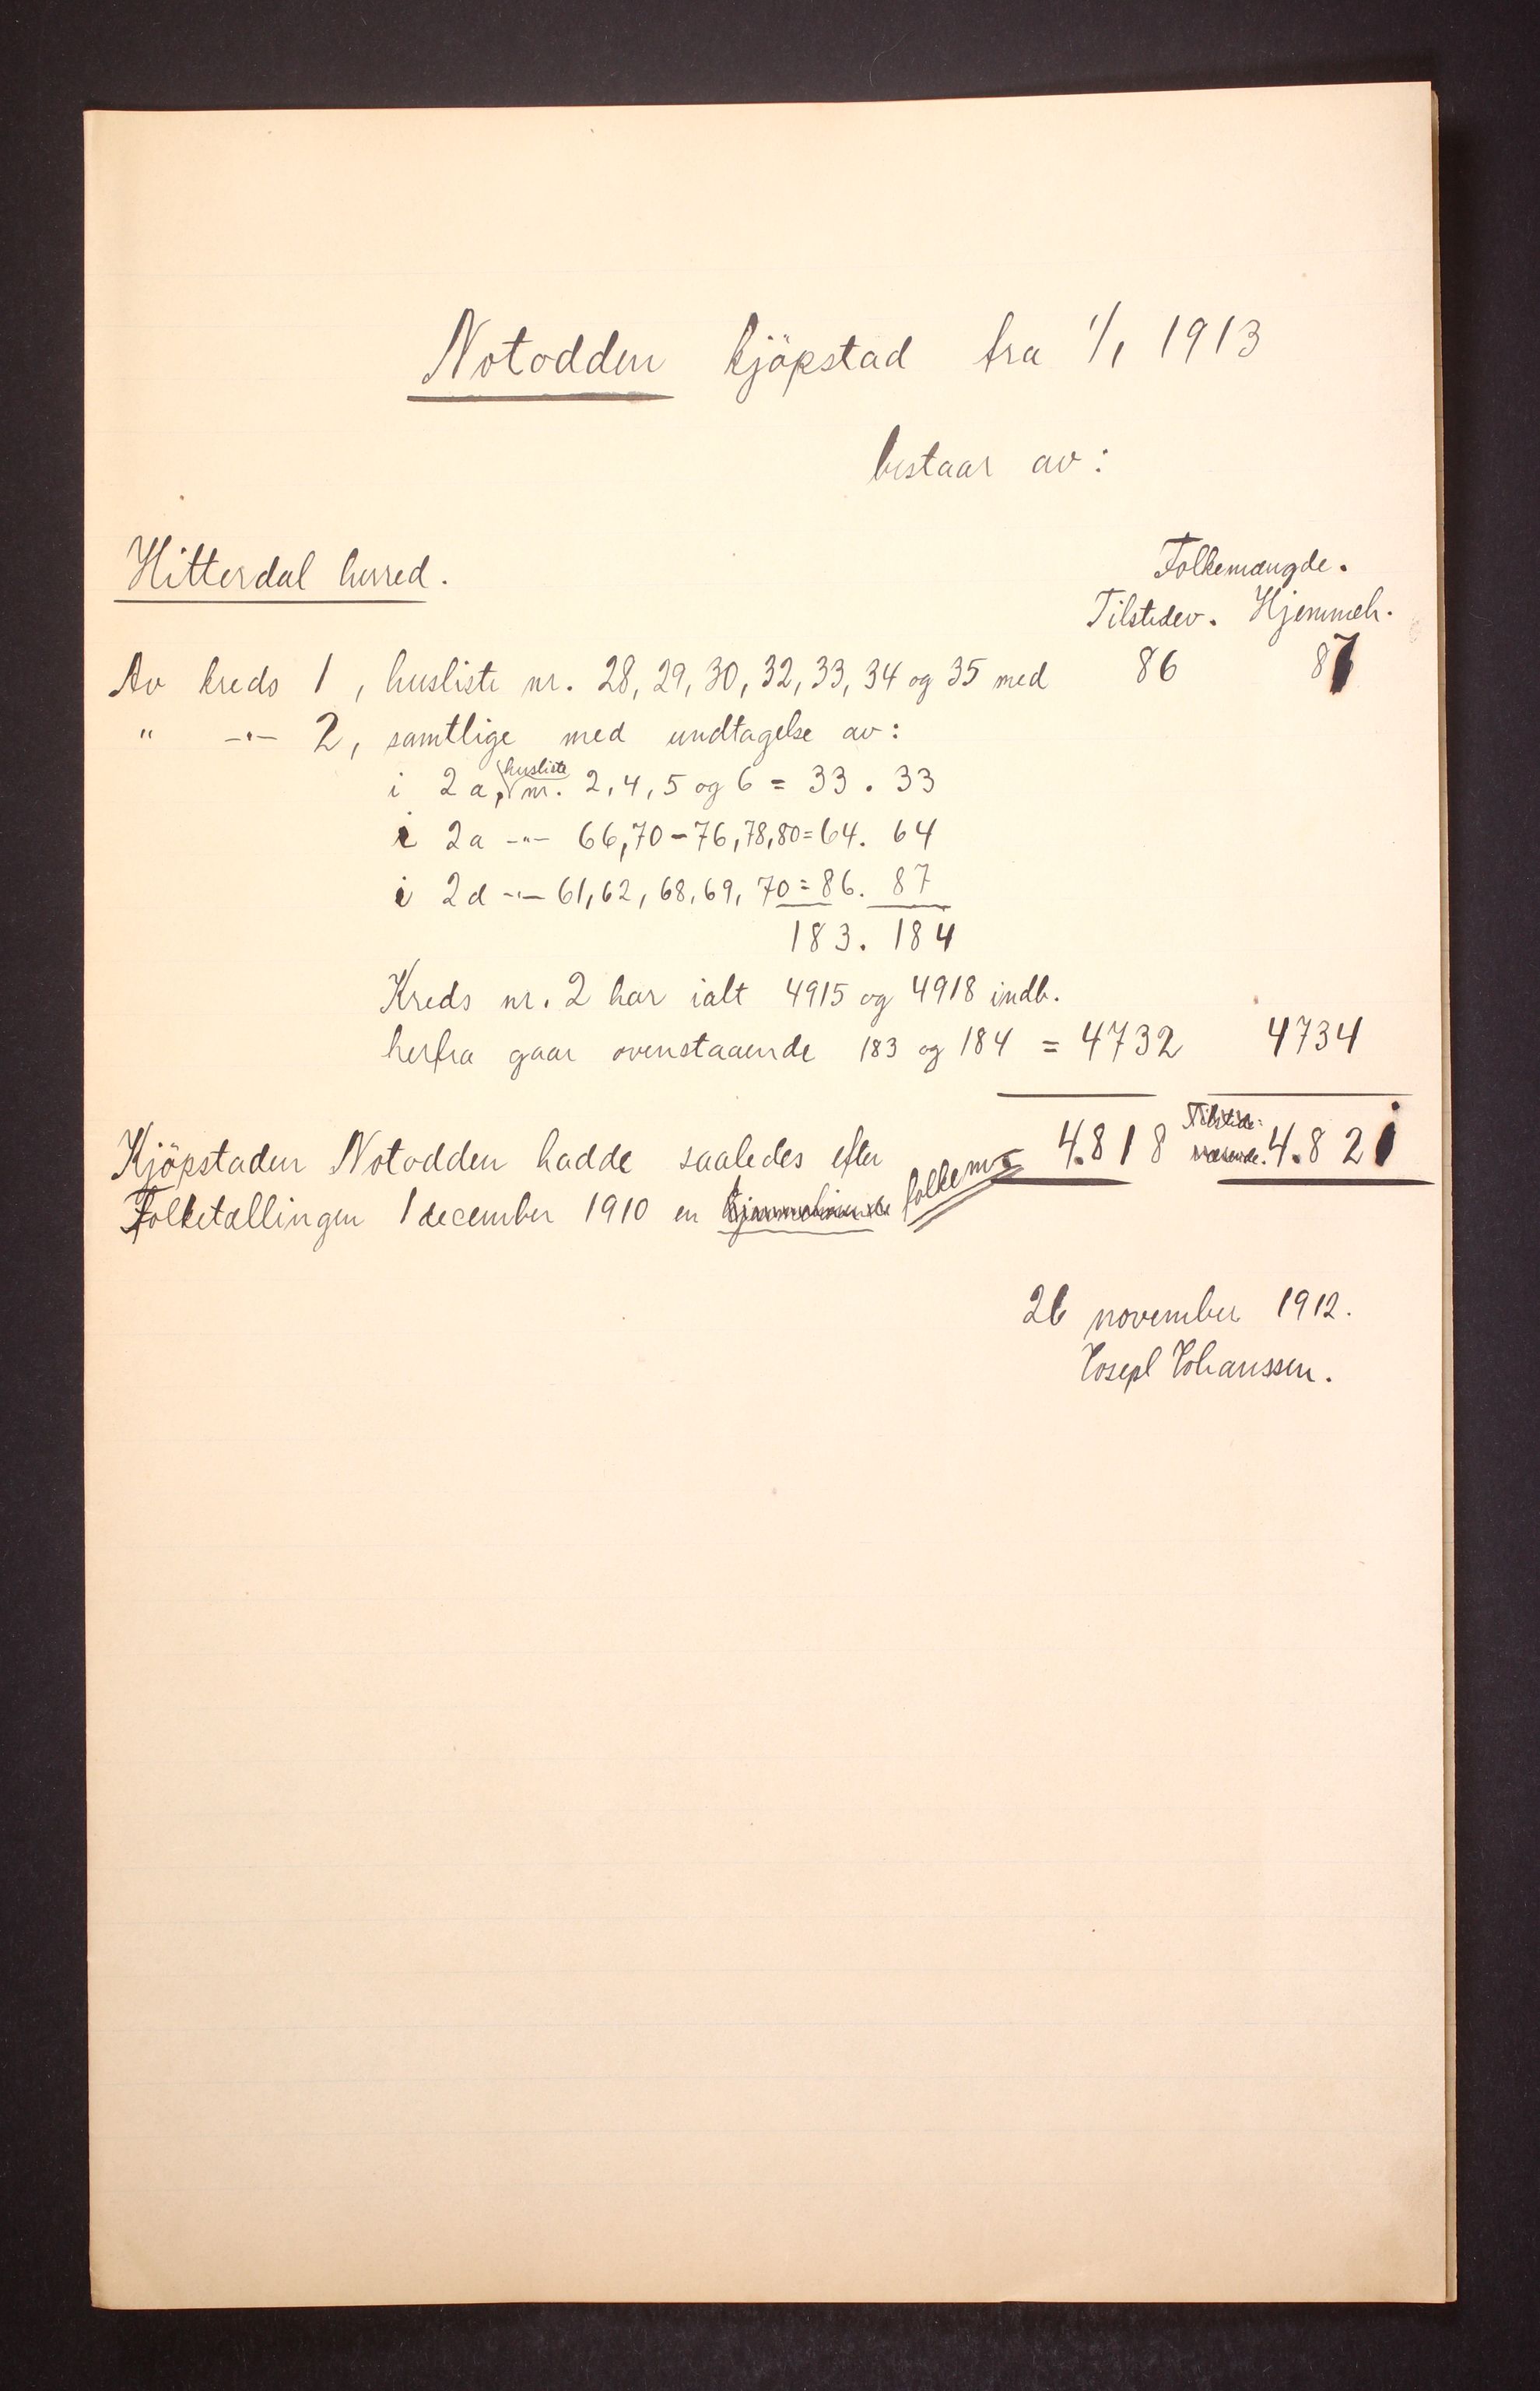 Notodden kjöpstad fra 1/1 1913
bestaar av:
Hitterdal herred.
Folkemængde.
Tilstedev. Hjemmeh.
Av kreds 1, husliste nr. 28, 29, 30, 32, 33, 34 og 35 med 86 87
" -"- 2, samtlige med undtagelse av:
i 2a, husliste nr. 2, 4, 5 og 6 = 33. 33
i 2a -"- 66, 70-76, 78, 80 = 64. 64
i 2d -"- 61, 62, 68, 69, 70 = 86. 87
183. 184
Kreds nr. 2 har ialt 4915 og 4918 indb.
herfra gaar ovenstaaende 183 og 184 = 4732 4734
Kjöpstaden Notodden hadde saaledes efter 4.818 4.821
Folketællingen 1 december 1910 en folkem.
26 november 1912.
Josef Johanssen.